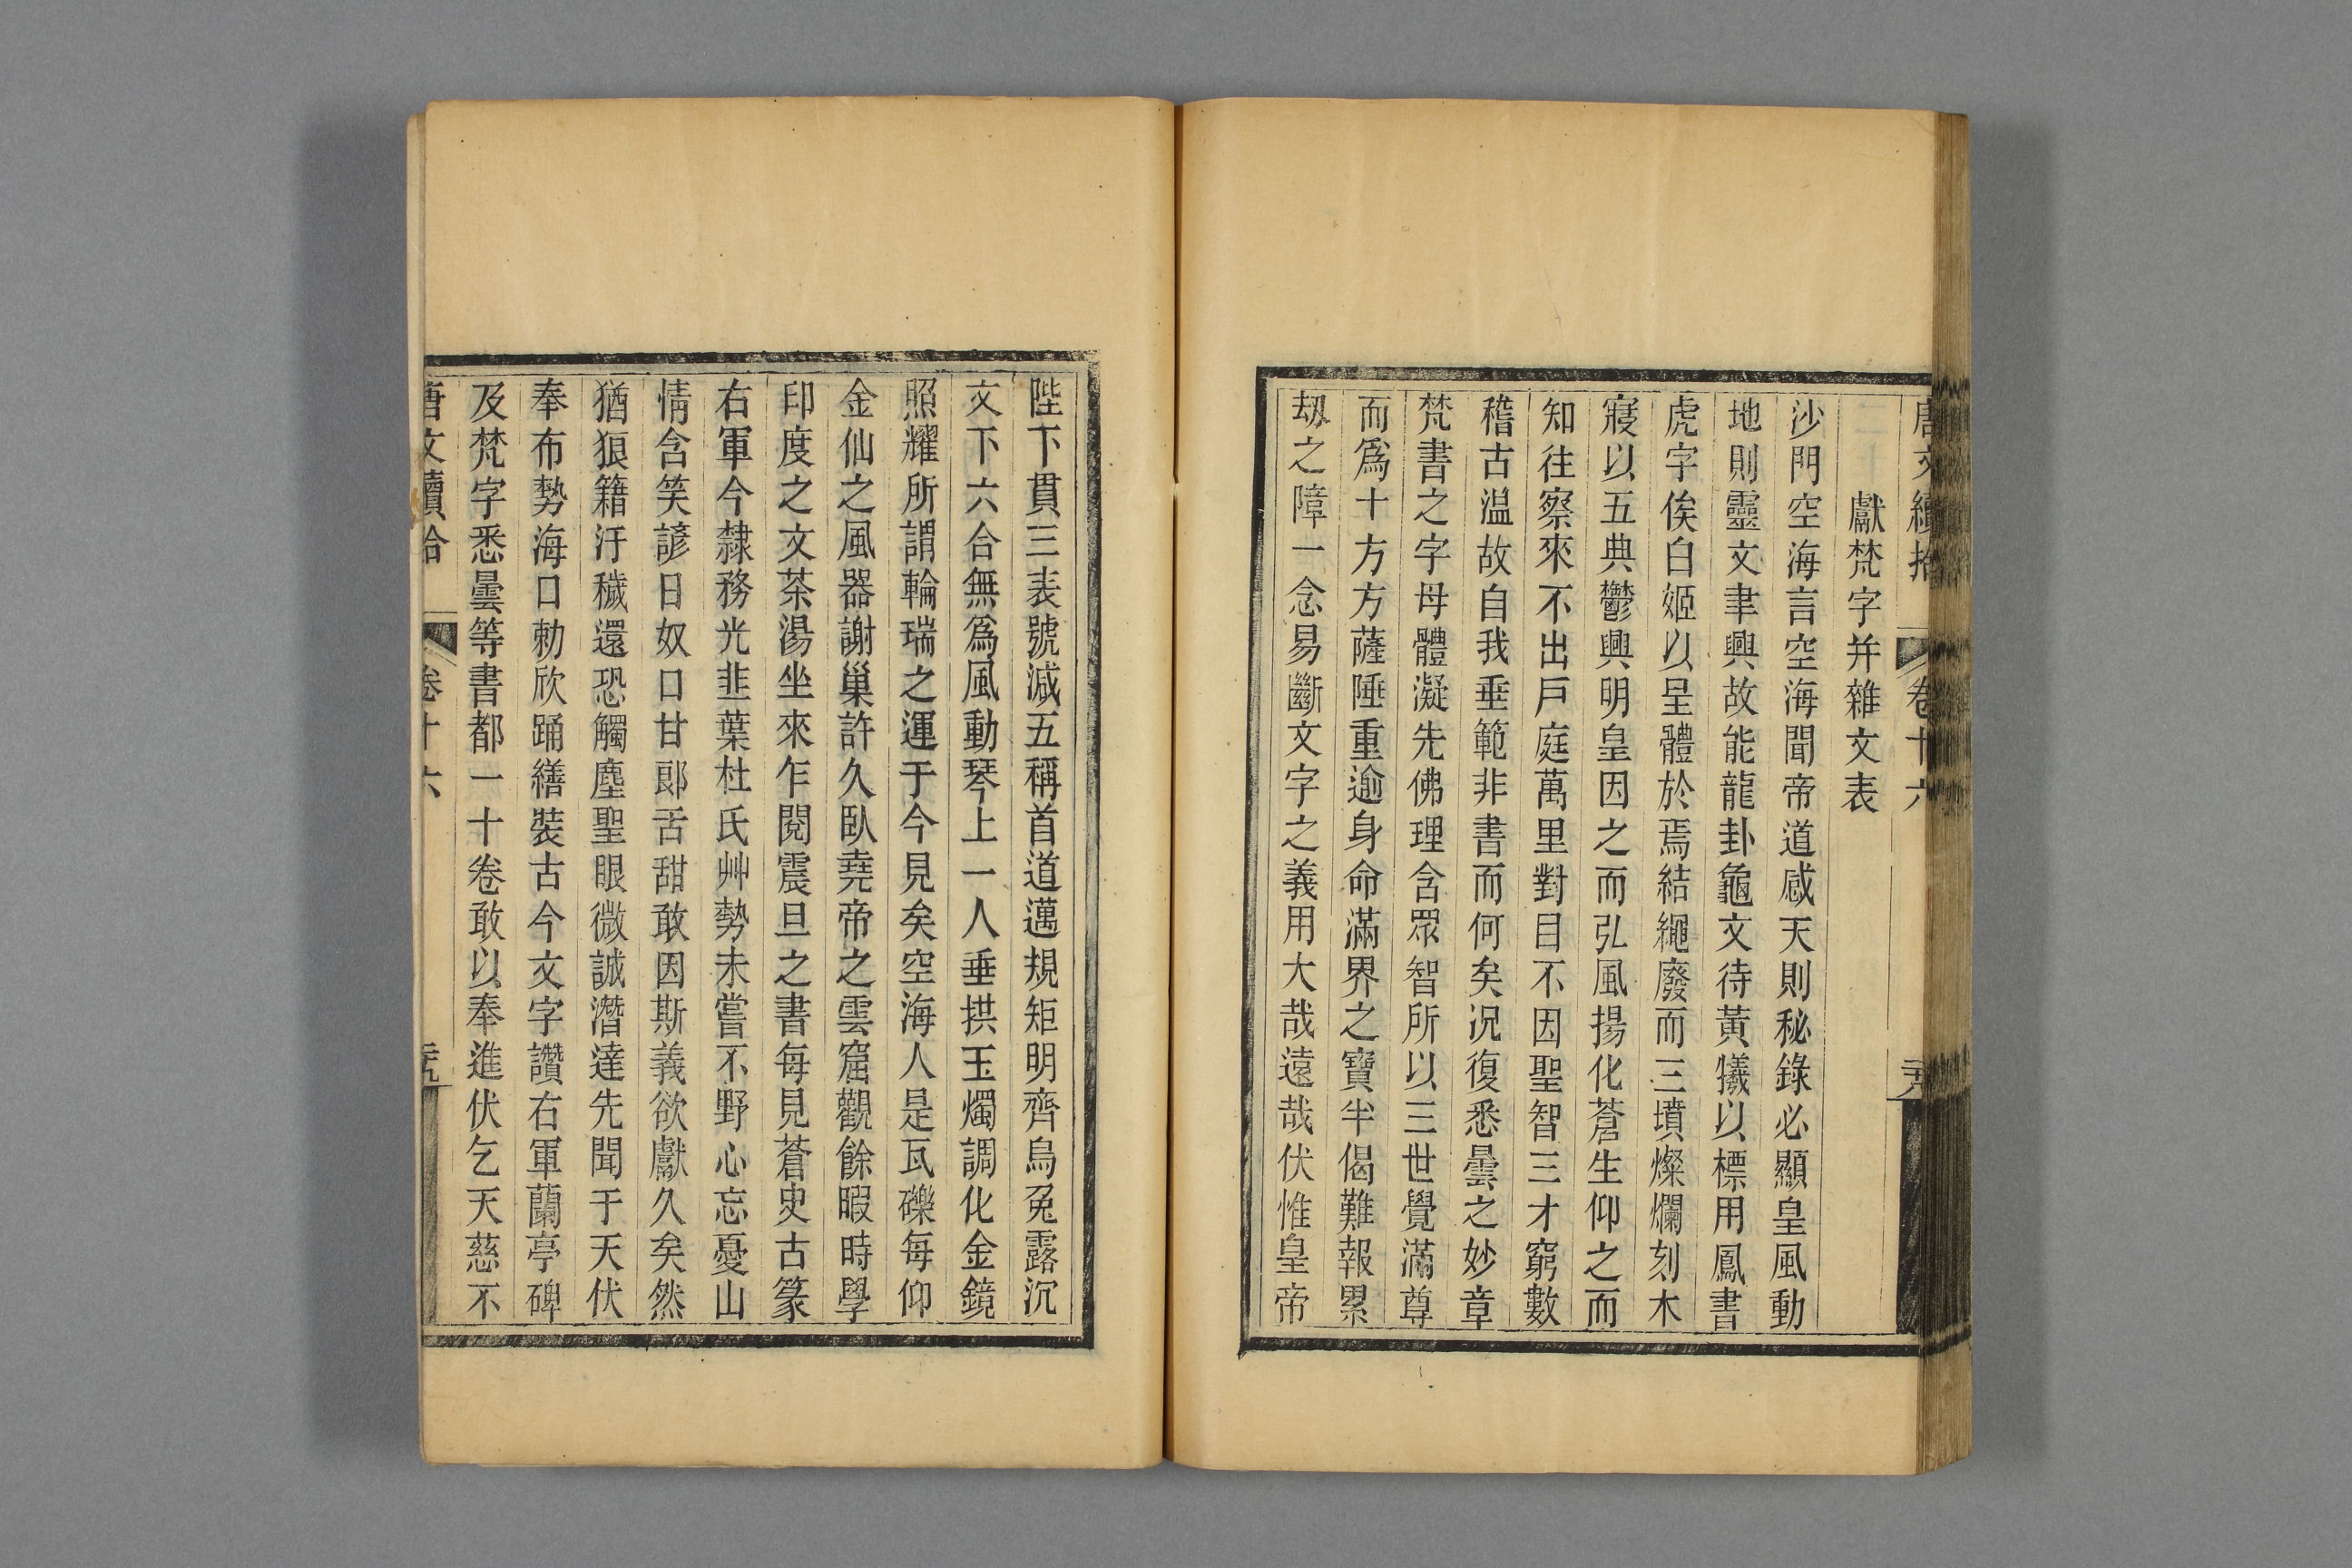 唐文續拾 卷十六
獻梵字并雜文表
沙門空海言空海聞帝道感天則秘錄必顯皇風動
地則靈文聿興故能龍卦龜文待黃犧以標用鳳書
虎字俟白姬以呈體於焉結繩廢而三墳燦爛刻木
寢以五典鬱興明皇因之而弘風揚化蒼生仰之而
知往察來不出戶庭萬里對目不因聖智三才窮數
稽古温故自我垂範非書而何矣況復悉曇之妙章
梵書之字母體凝先佛理含眾智所以三世覺滿尊
而爲十方方薩陲重逾身命滿界之寶半偈難報累
刼之障一念易斷文字之義用大哉遠哉伏惟皇帝
陛下貫三表號減五稱首道邁規矩明齊烏兔露沉
文下六合無爲風動琴上一人垂拱玉燭調化金鏡
照耀所謂輪瑞之運于今見矣空海人是瓦礫每仰
金仙之風器謝巢許久臥堯帝之雲窟觀餘暇時學
印度之文茶湯坐來乍閱震旦之書每見蒼史古篆
右軍今隸務光韭葉杜氏艸勢未嘗不野心忘憂山
情含笑諺日奴口甘郎舌甜敢因斯義欲獻久矣然
猶狼籍汙穢還恐觸塵聖眼微誠潛達先聞于天伏
奉布勢海口勅欣踊繕裝古今文字讚右軍蘭亭碑
及梵字悉曇等書都一十卷敢以奉進伏乞天慈不
唐文續拾 卷十六